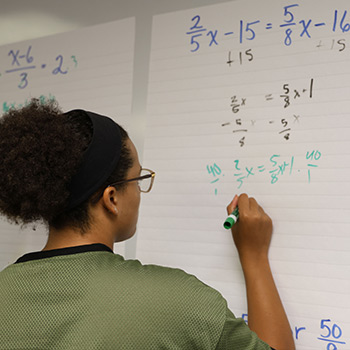 x-6/3 · 2
2/5x - 15 = 5/8x - 16
+15 +15
2/5x = 5/8x + 1
- 5/8x - 5/8x
40/1 · 2/5x = 5/8x + 1 · 40/1
r 50